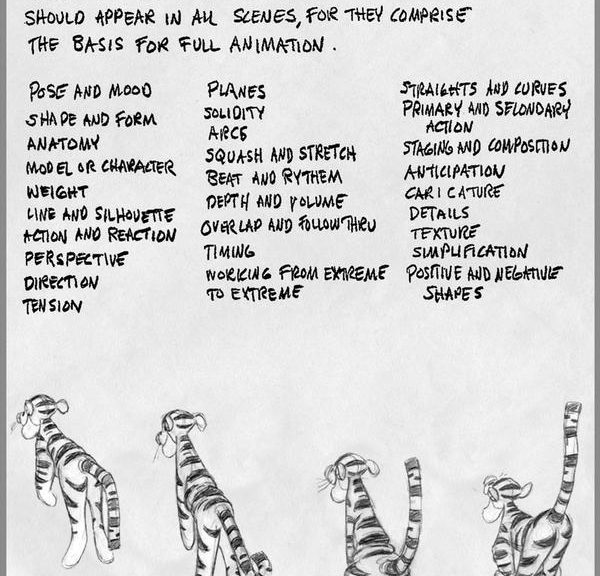 SHOULD APPEAR IN ALL SCENES, FOR THEY COMPRISE
THE BASIS FOR FULL ANIMATION.
POSE AND MOOD
SHAPE AND FORM
ANATOMY
MODEL OR CHARACTER
WEIGHT
LINE AND SILHOUETTE
ACTION AND REACTION
PERSPECTIVE
DIRECTION
TENSION
PLANES
SOLIDITY
ARCS
SQUASH AND STRETCH
BEAT AND RYTHEM
DEPTH AND VOLUME
OVERLAP AND FOLLOW THRU
TIMING
WORKING FROM EXTREME
TO EXTREME
STRAIGHTS AND CURVES
PRIMARY AND SECONDARY
ACTION
STAGING AND COMPOSITION
ANTICIPATION
CARICATURE
DETAILS
TEXTURE
SIMPLIFICATION
POSITIVE AND NEGATIVE
SHAPES